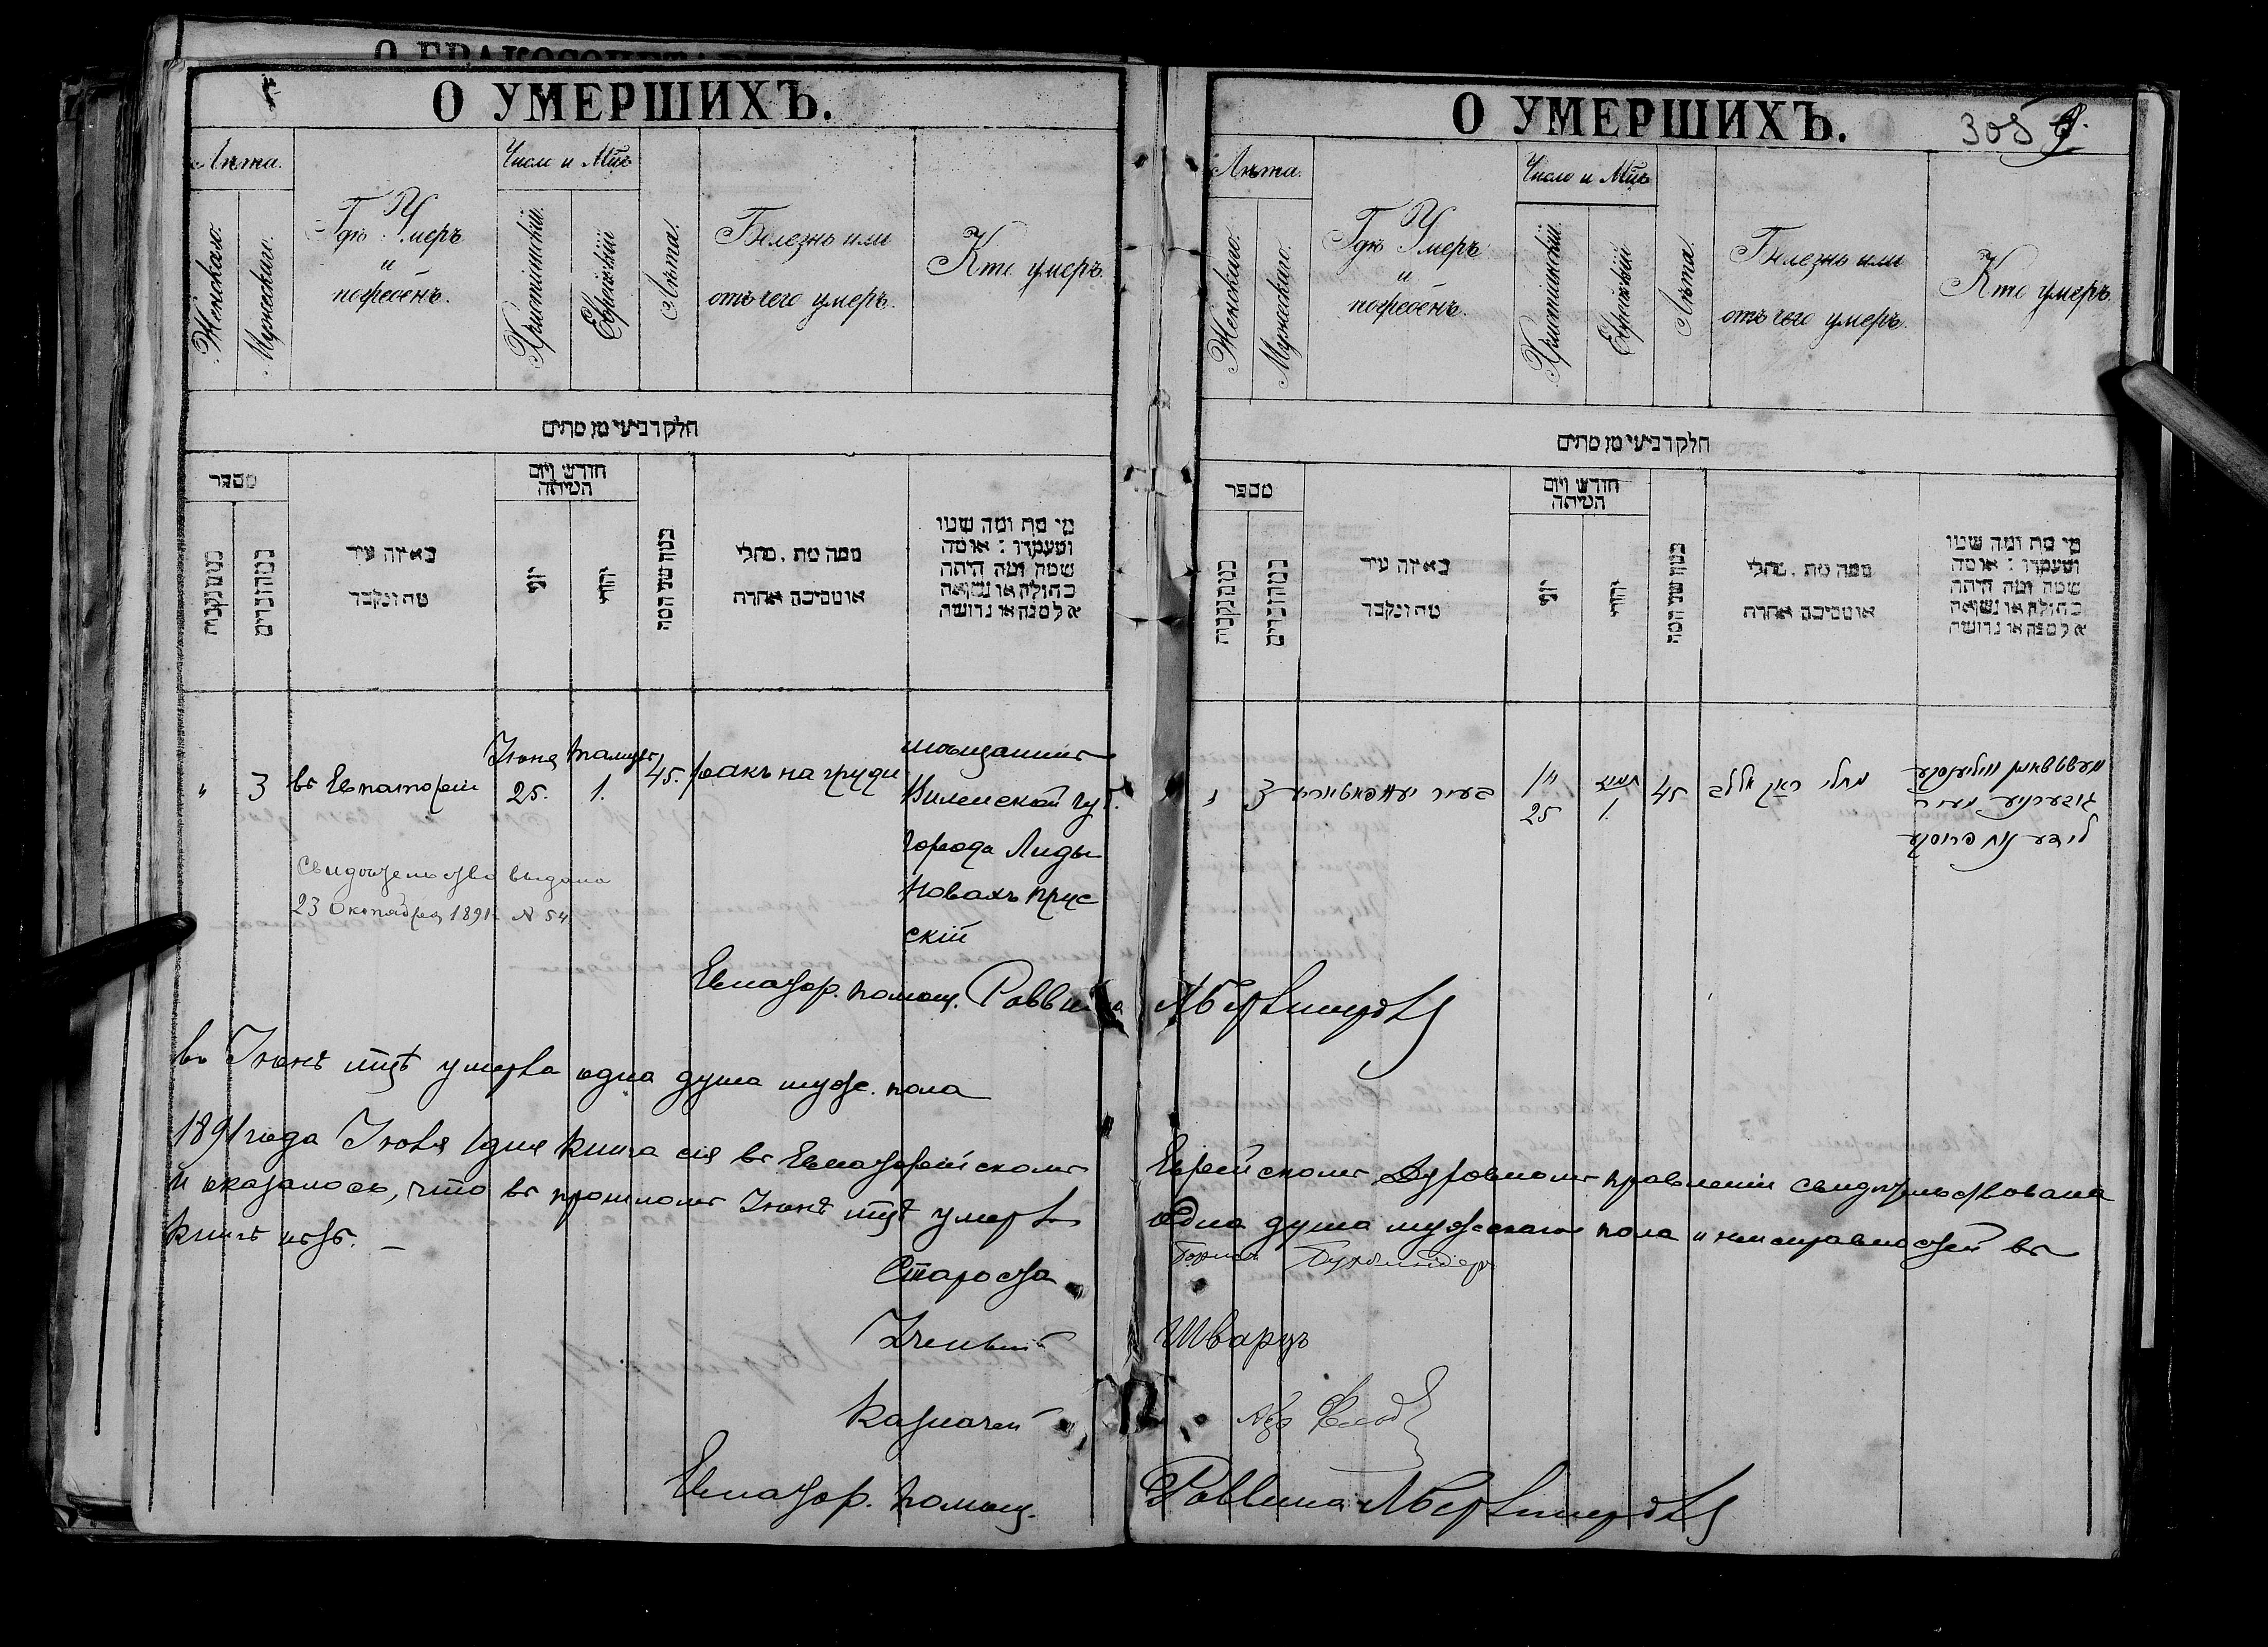 О УМЕРШИХЪ.
Лѣта.
Женскаго.
Мужескаго.
Гдѣ Умеръ
и
погребенъ.
Число и Мцъ
Христіанскій.
Еврейскій
Лѣта.
Болезнь или
отъ чего умеръ.
Кто умеръ.
חלק רביעי מן מתים
מספר
באיזה עיר
מת ונקבר
חודש ויום
המיתה
יהודי
ממה מת . מחלי
או מסיבה אחרת
מי מת ומה שמו
ומעמדו : או מה
שמה ומה היתה
בתולה או נשואה
אלמנה או גרושה
„ 3 въ Евпаторіи Іюня 25. Тамузъ 1. 45. ракъ на груди
мѣщанинъ
Виленской губ.
города Лиды
Новахъ Прус
скій
Свидѣтельство выдано
23 Октября 1891 г. № 54
Евпатор. помощ. Раввина
въ Іюнѣ мцѣ умерла одна душа муж. пола
1891 года Іюля 1 дня книга сія въ Евпаторійскомъ
и оказалось, что въ прошломъ Іюнѣ мцѣ умерла
книгѣ нѣтъ. —
Староста
Ученый
Казначей
Евпатор. помощ.
О УМЕРШИХЪ.
305
Лѣта.
Женскаго.
Мужескаго.
Гдѣ Умеръ
и
погребенъ.
Число и Мцъ
Христіанскій.
Еврейскій
Лѣта.
Болезнь или
отъ чего умеръ.
Кто умеръ.
חלק רביעי מן מתים
מספר
באיזה עיר
מת ונקבר
חודש ויום
המיתה
יהודי
ממה מת . מחלי
או מסיבה אחרת
מי מת ומה שמו
ומעמדו : או מה
שמה ומה היתה
בתולה או נשואה
אלמנה או גרושה
3 בעיר יעוופאטאריע 25 תמוז 1. 45 מחלי ראק
גובערניע מעיר
לידע נח פרוסקי
Еврейскомъ Духовномъ правленіи свидѣтельствована
одна душа мужескаго пола и неисправностей въ
Шварцъ
Раввина